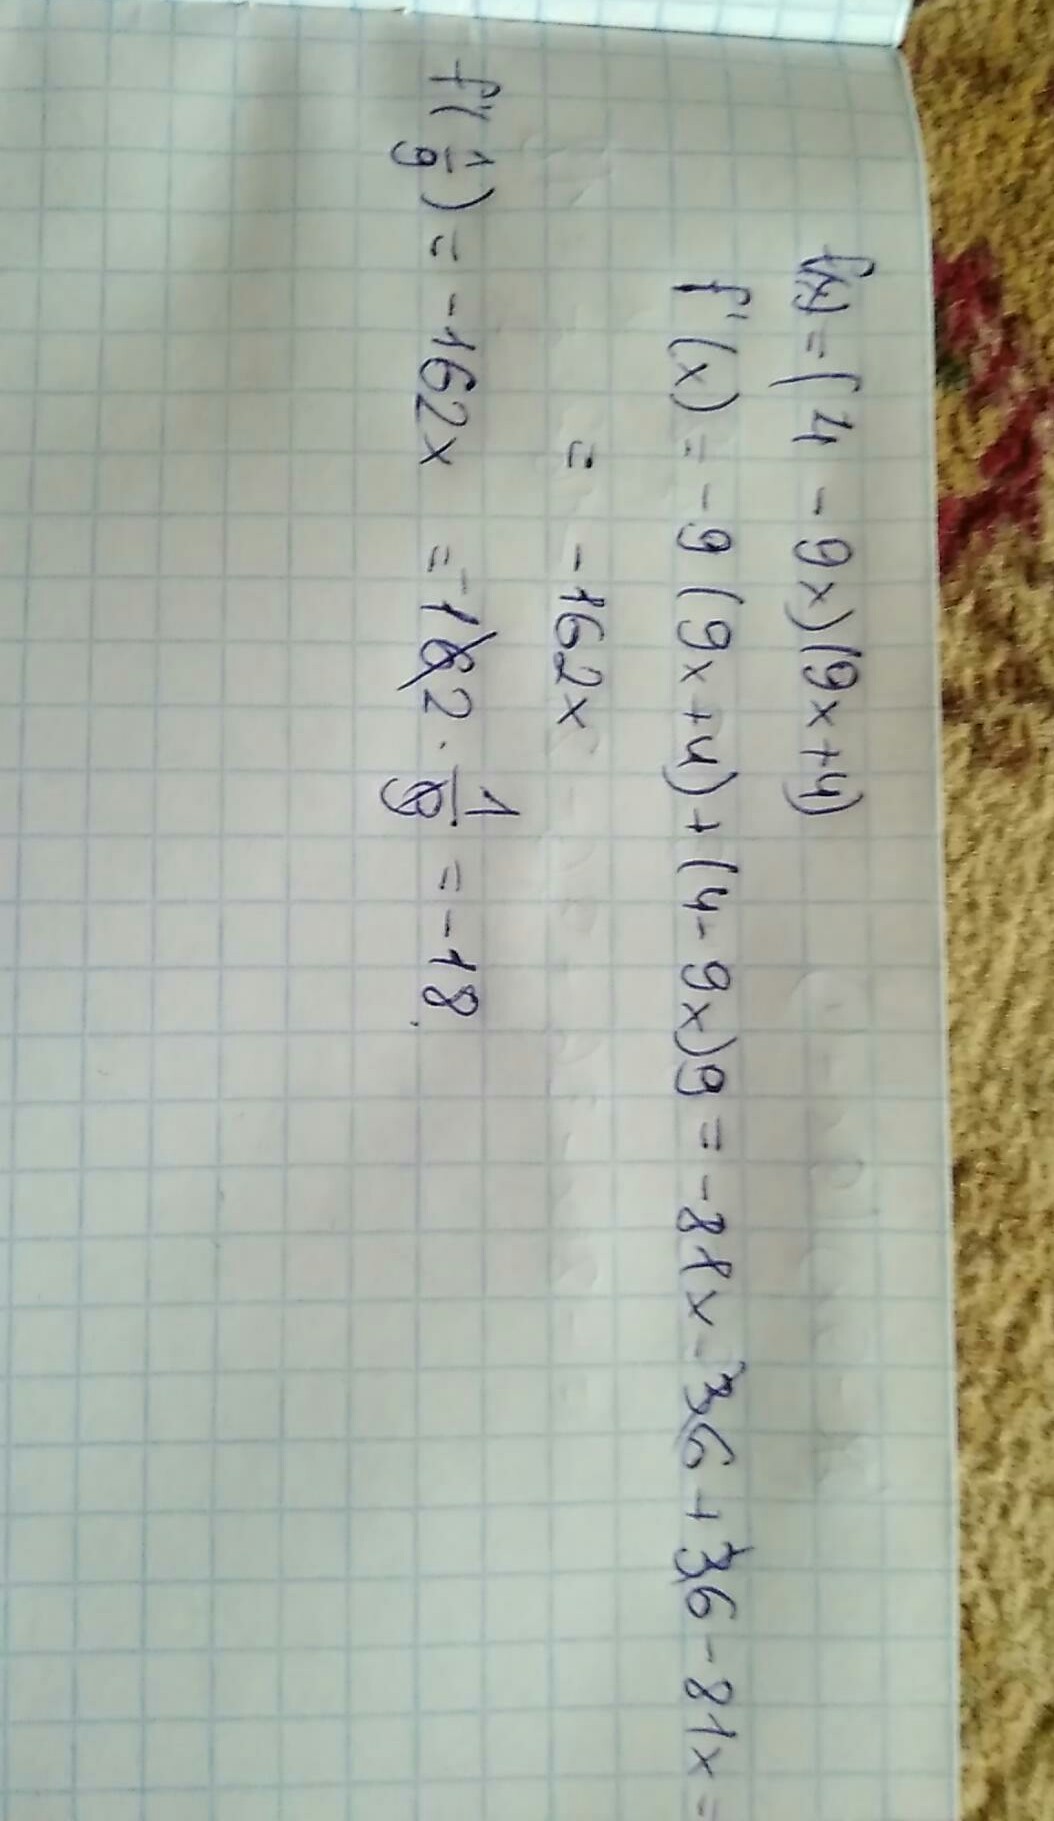 f(x) = (4 - 9x)(9x+4)
f'(x) = -9(9x+4)+(4-9x)9 = -81x-36+36-81x=
= -162x
f'(1/9) = -162x = -162 · 1/9 = -18.